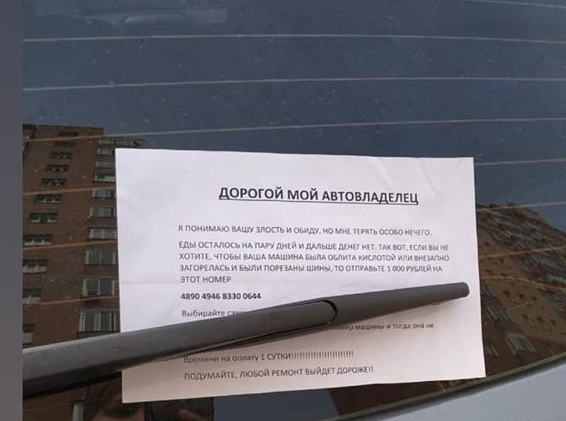 ДОРОГОЙ МОЙ АВТОВЛАДЕЛЕЦ
Я ПОНИМАЮ ВАШУ ЗЛОСТЬ И ОБИДУ, НО МНЕ ТЕРЯТЬ ОСОБО НЕЧЕГО.
ЕДЫ ОСТАЛОСЬ НА ПАРУ ДНЕЙ И ДАЛЬШЕ ДЕНЕГ НЕТ. ТАК ВОТ, ЕСЛИ ВЫ НЕ
ХОТИТЕ, ЧТОБЫ ВАША МАШИНА БЫЛА ОБЛИТА КИСЛОТОЙ ИЛИ ВНЕЗАПНО
ЗАГОРЕЛАСЬ И БЫЛИ ПОРЕЗАНЫ ШИНЫ, ТО ОТПРАВЬТЕ 1 000 РУБЛЕЙ НА
ЭТОТ НОМЕР
4890 4946 8330 0644
Выбирайте
машины и тогда она не
Времени на оплату 1 СУТКИ!!!!!!!!!!!!!!!!!!!!!!!
ПОДУМАЙТЕ, ЛЮБОЙ РЕМОНТ ВЫЙДЕТ ДОРОЖЕ!!